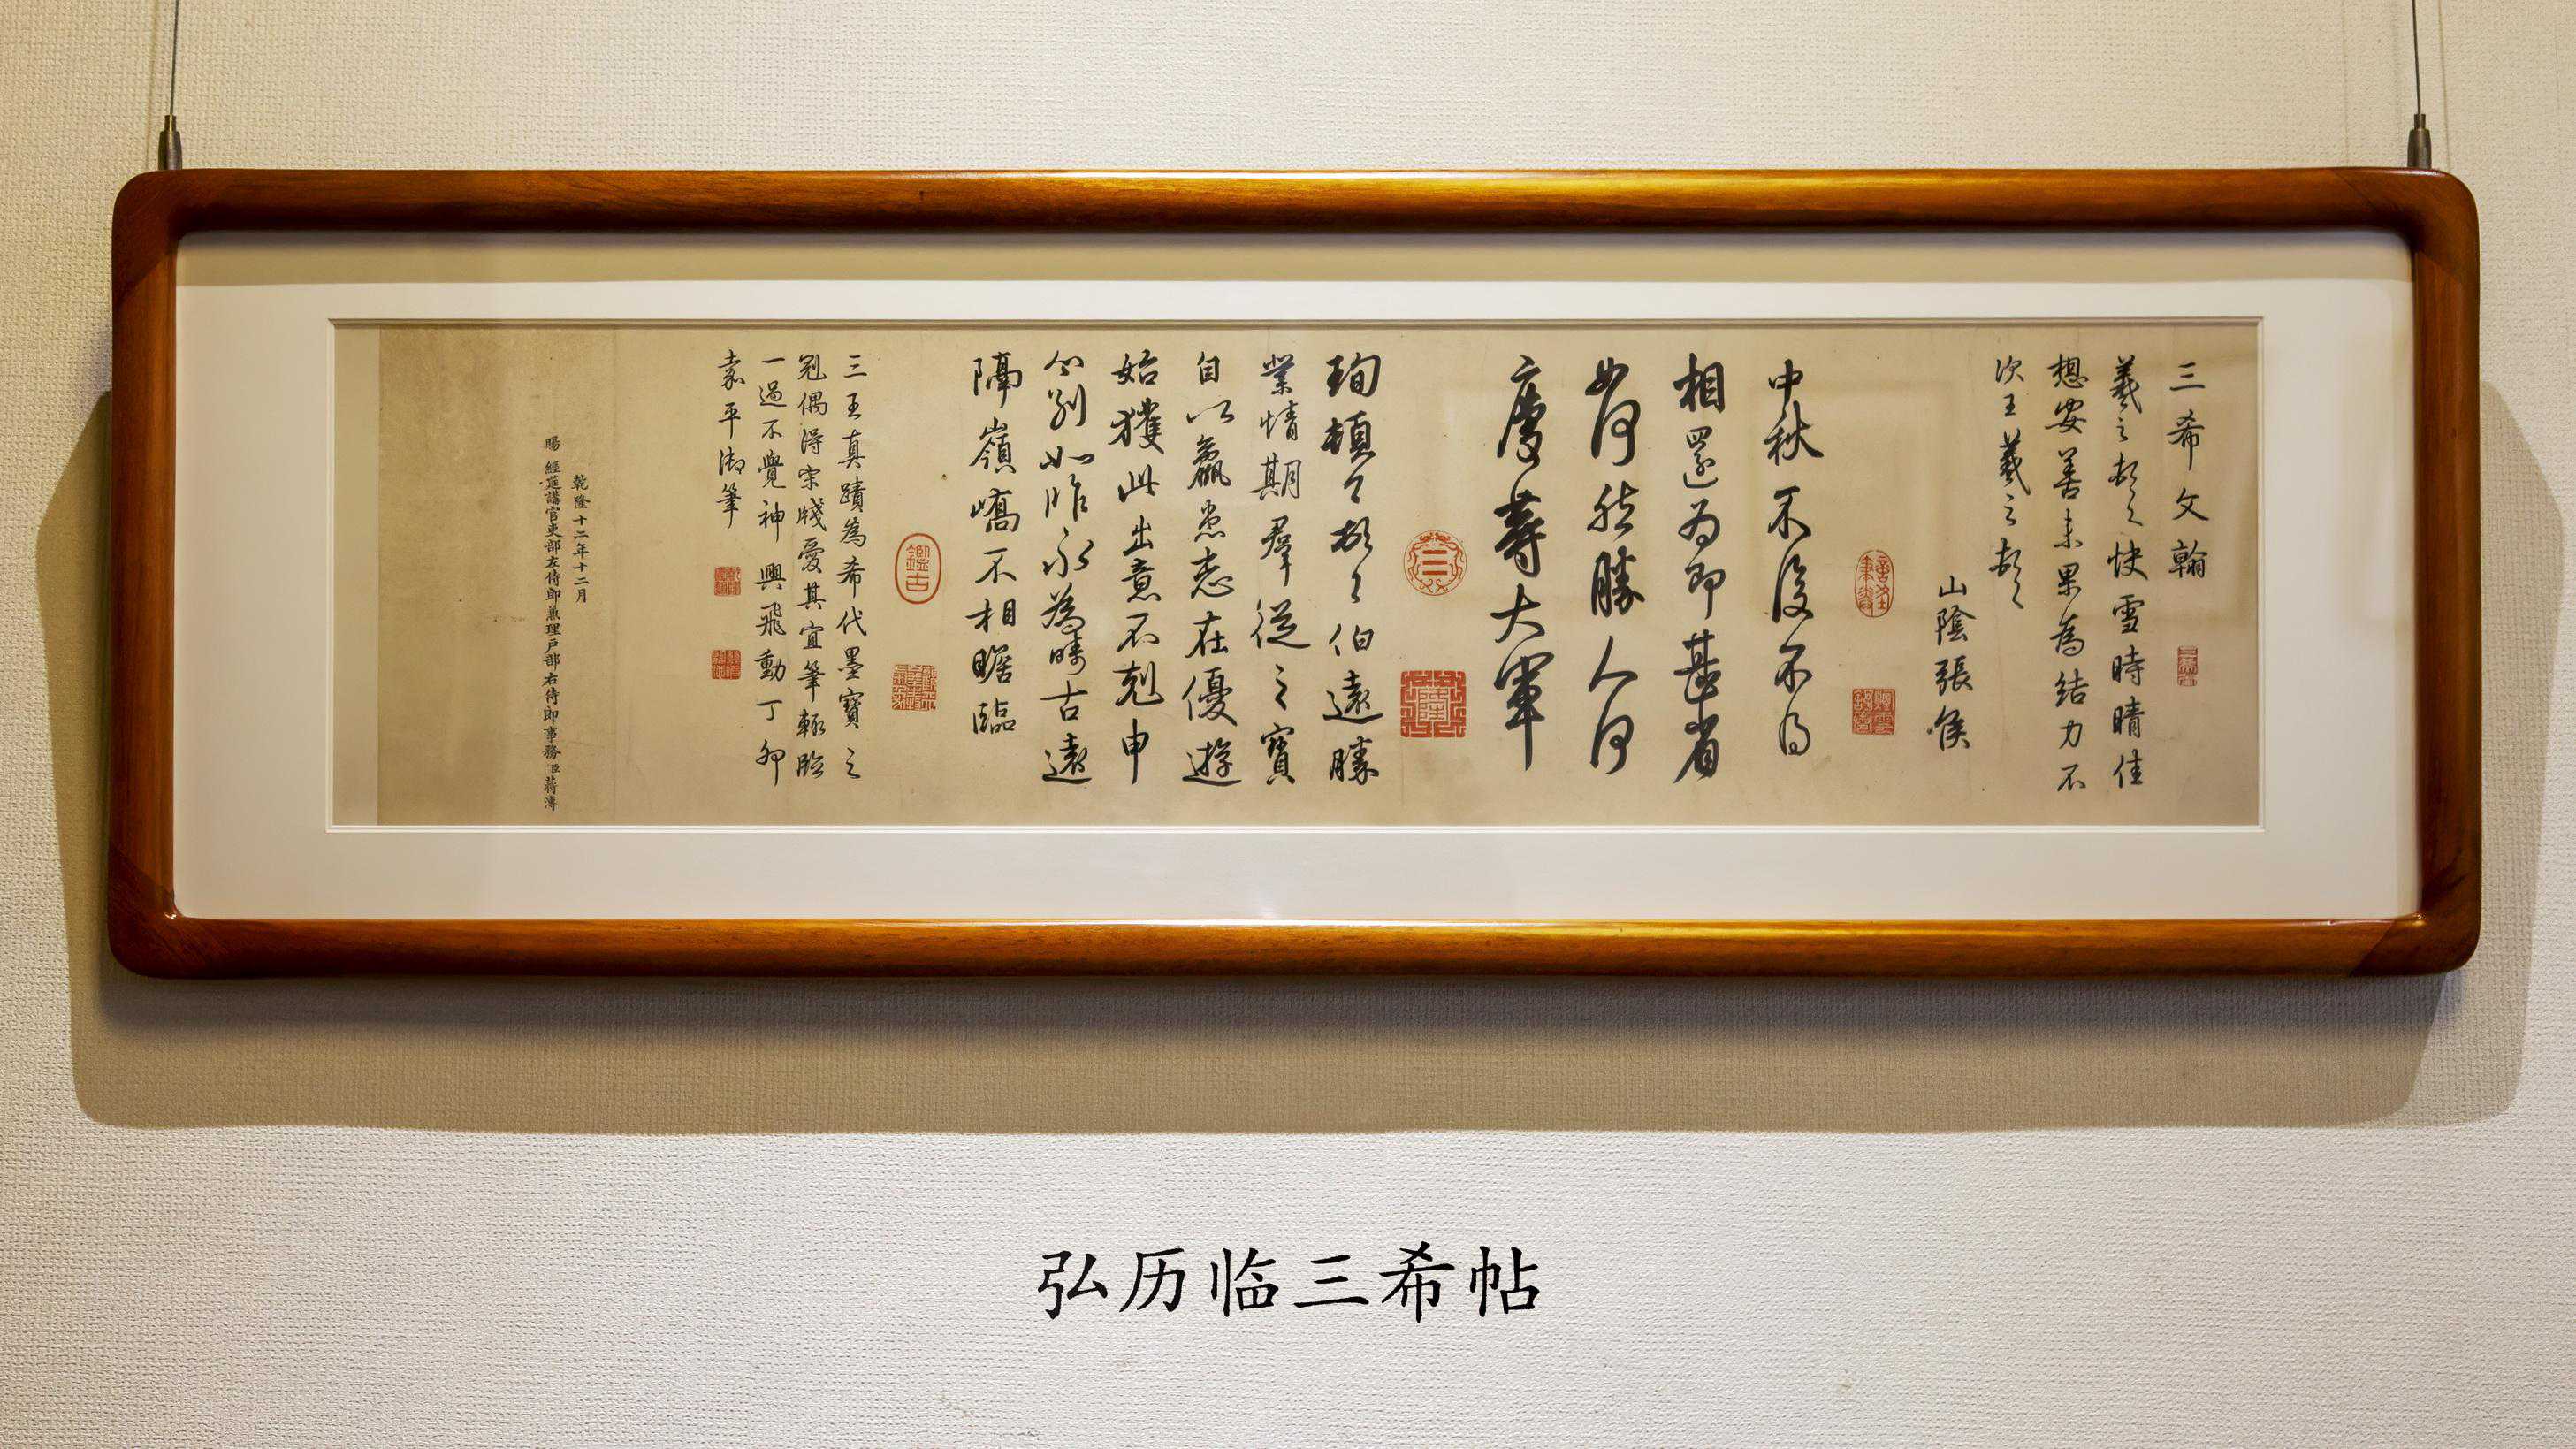 三希文翰
羲之頓首快雪時晴佳
想安善未果為結力不
次王羲之頓首
山陰張侯
中秋不復不得
相還為即甚省
如何然勝人何
慶等大軍
珣頓首頓首伯遠勝
業情期羣從之寶
自以羸患志在優遊
始獲此出意不剋申
分別如昨永為疇古遠
隔嶺嶠不相瞻臨
三王真蹟為希代墨寶之
冠偶得宋牋愛其宜筆輒臨
一過不覺神興飛動丁卯
嘉平御筆
乾隆十二年十二月
賜經筵講官吏部左侍郎兼理戶部右侍郎事務臣蔣溥
弘历临三希帖